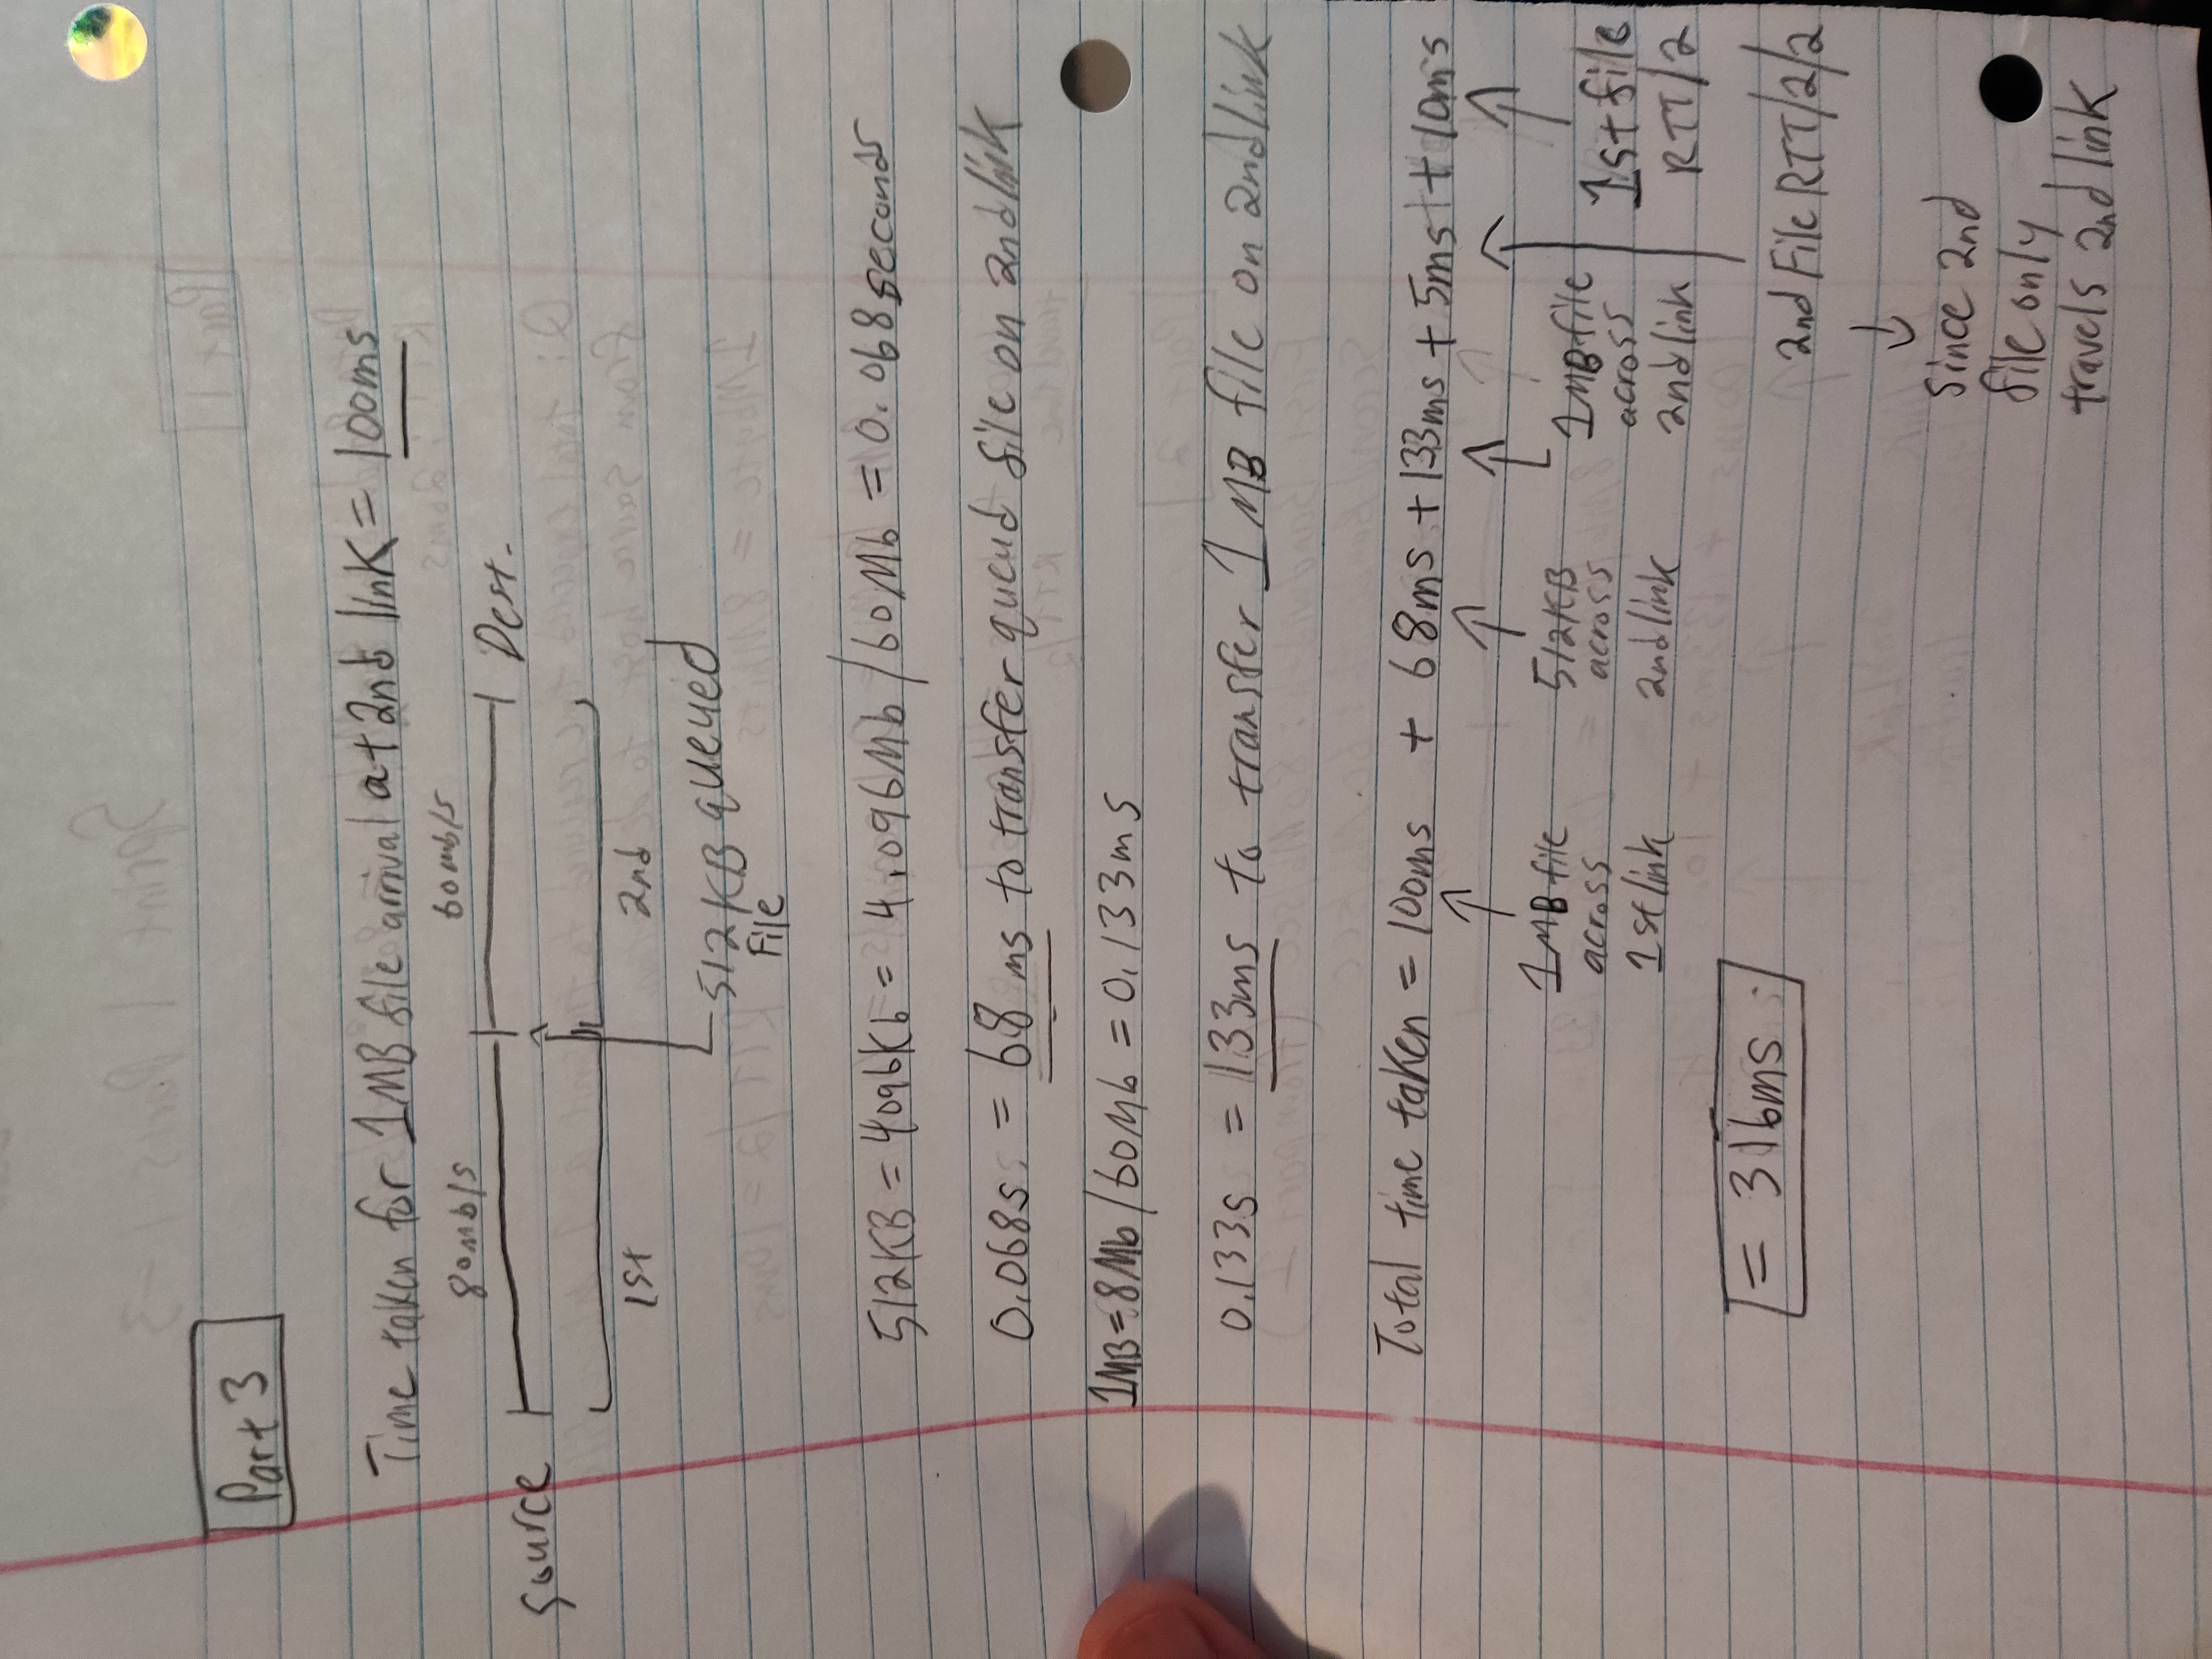 Part 3
Time taken for 1MB file arrival at 2nd link = 100ms
80Mb/s 60mb/s
source Dest.
1st 2nd
512KB queued
File
512KB = 4096Kb = 4.096Mb/60Mb = 0.068seconds
0.068s = 68 ms to transfer queud file on 2nd link
1MB=8Mb/60Mb = 0.133ms
0.133s = 133ms to transfer 1MB file on 2nd link
Total time taken = 100ms + 68ms + 133ms + 5ms + 10ms
1MB file across 1st link
512KB across 2nd link
1MB file across 2nd link
1st file RTT/2
= 316ms
2nd File RTT/2/2
Since 2nd
file only
travels 2nd link